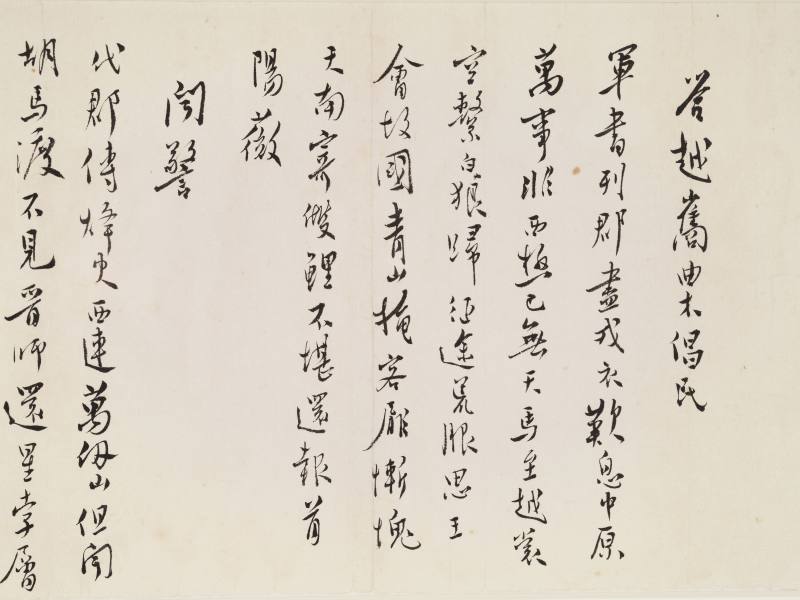 答越舊曲木倡民
軍書列郡盡戎衣歎息中原
萬事非西極已無天馬至越裳
空繫白狼歸征途荒服思王
會故國青山掩客扉慚愧
天南寄雙鯉不堪還報首
陽薇
聞警
代郡傳烽火西連萬仞山但聞
胡馬渡不見晉師還星孛層